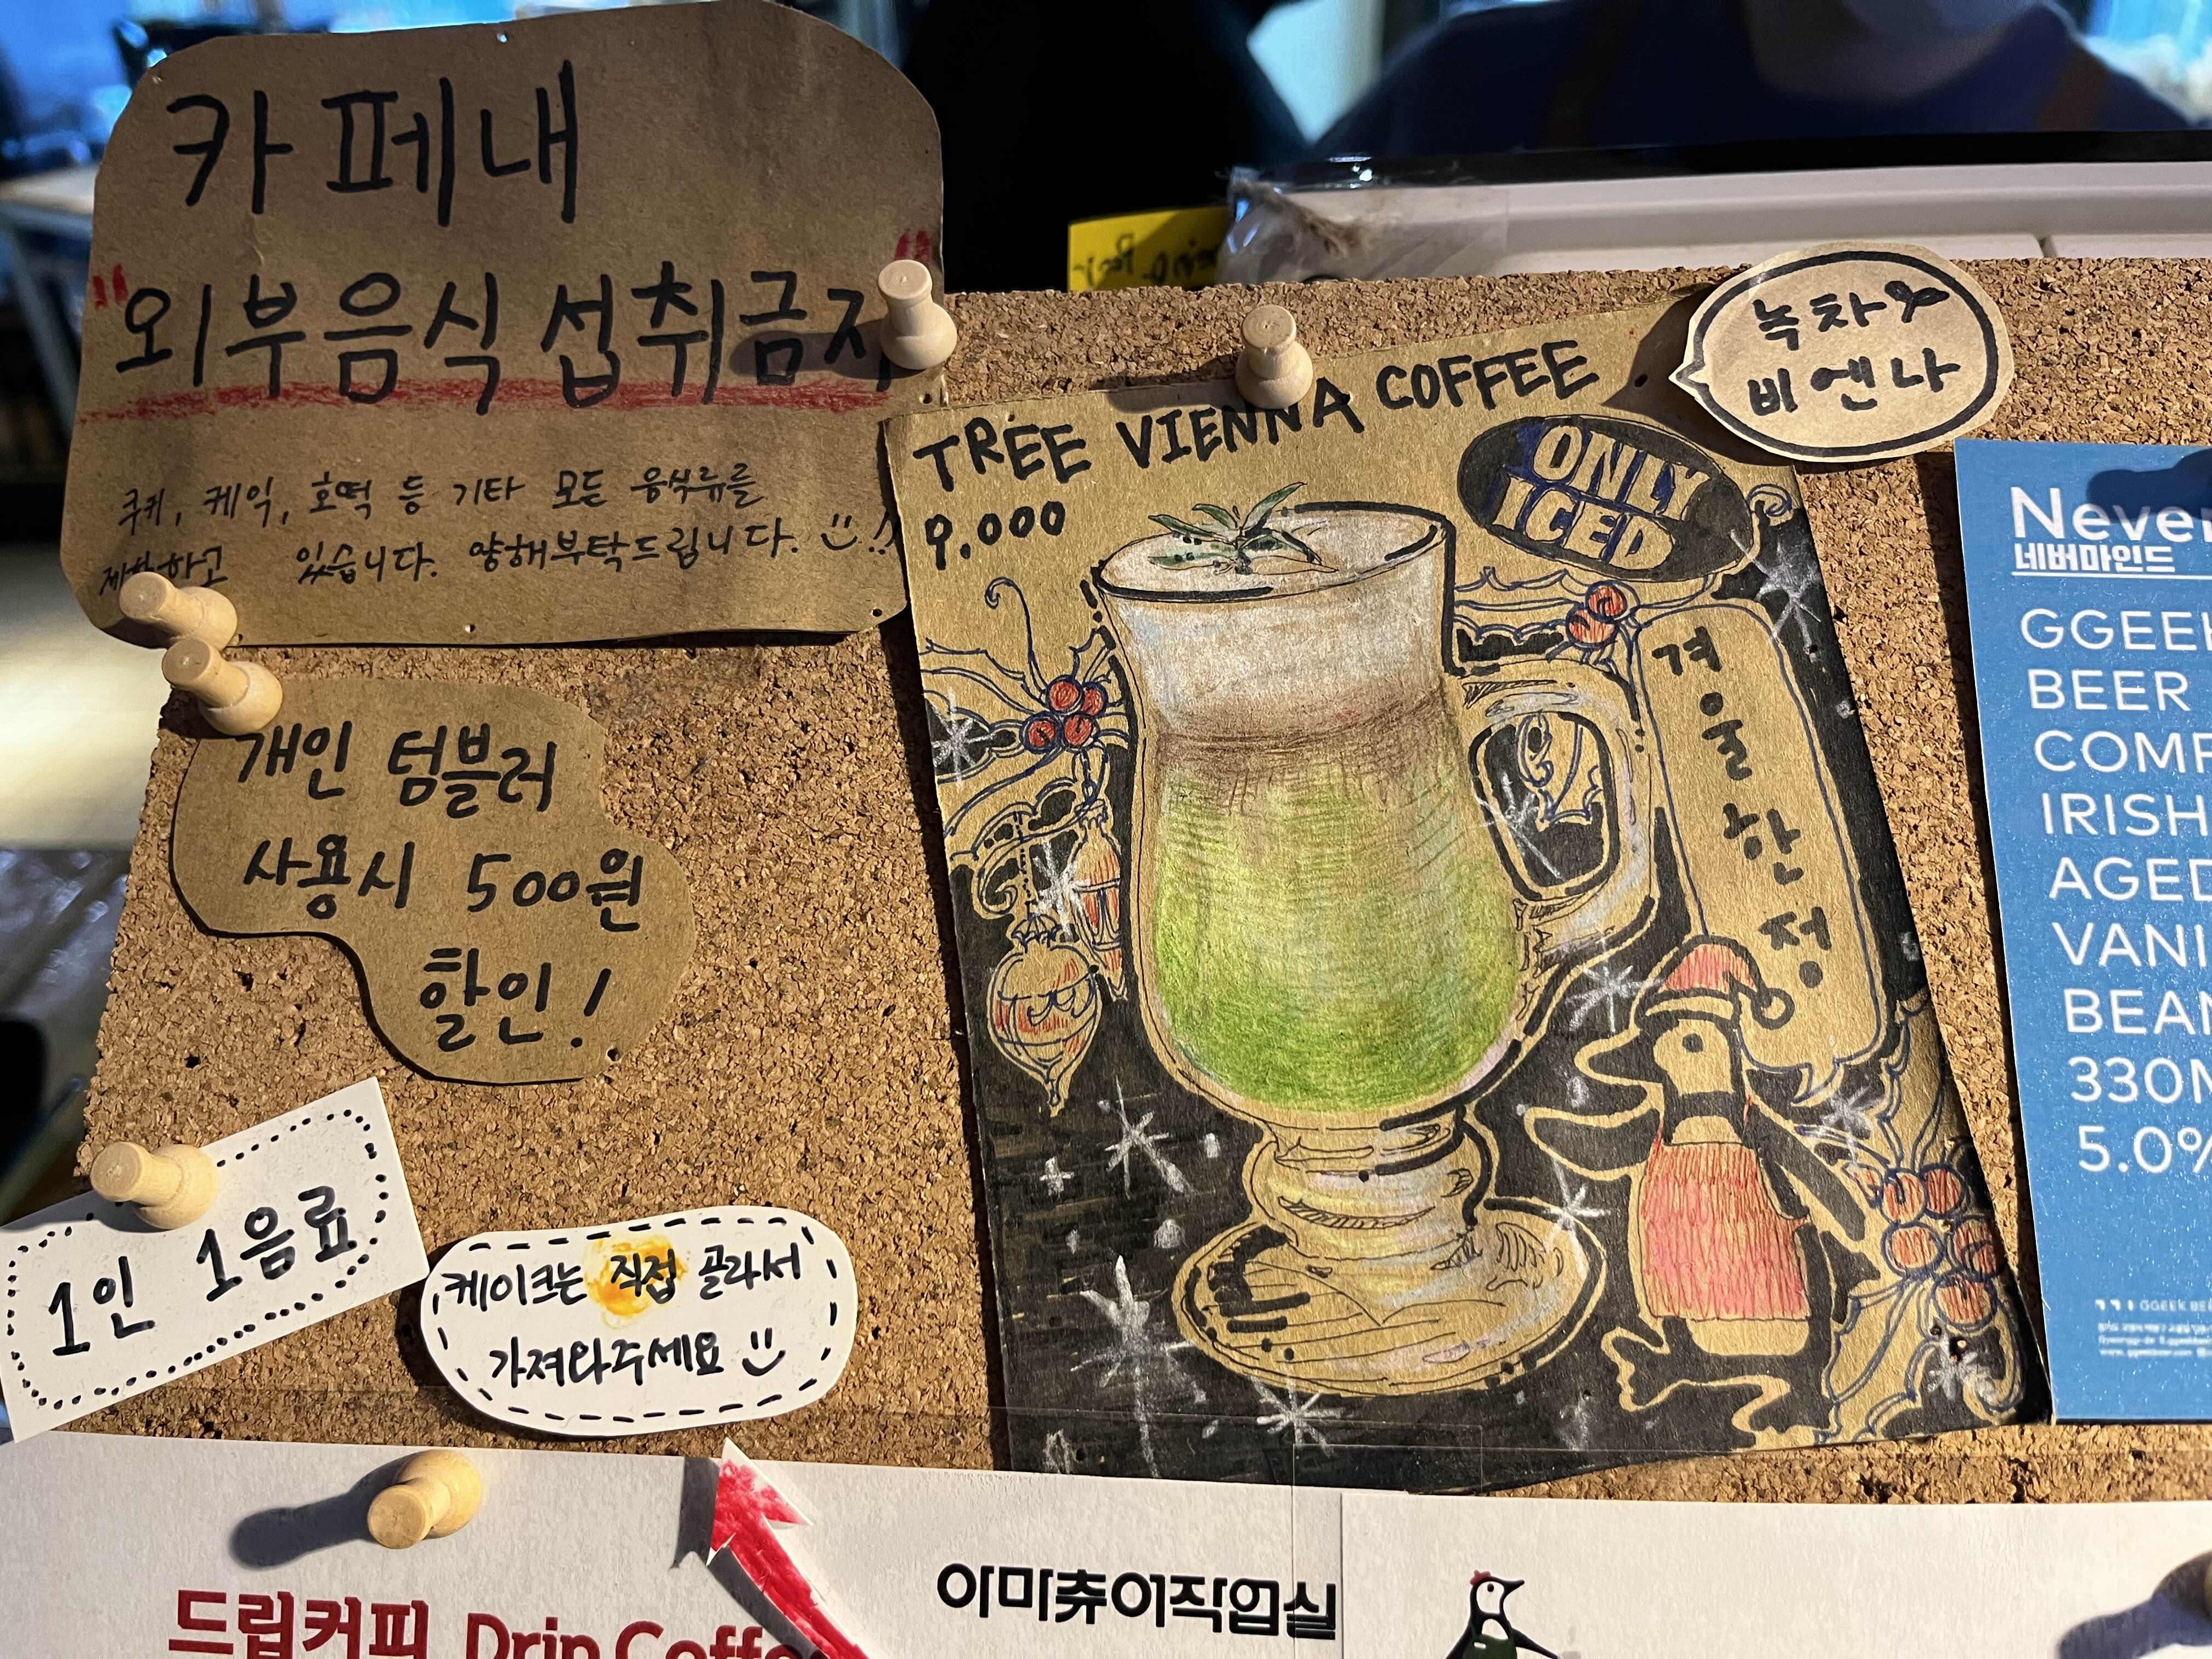 카페내
"외부음식 섭취금지"
쿠키, 케익, 호떡 등 기타 모든 음식류를
제한하고 있습니다. 양해부탁드립니다.
개인 텀블러
사용시 500원
할인!
1인 1음료
케이크는 직접 골라서
가져와주세요
TREE VIENNA COFFEE
9,000
ONLY
ICED
녹차
비엔나
겨울한정
Never
네버마인드
GGEEK
BEER
COMP
IRISH
AGED
VANI
BEAN
330M
5.0%
GGEEK BE
드립커피 Drip Coffe
아마츄어작업실